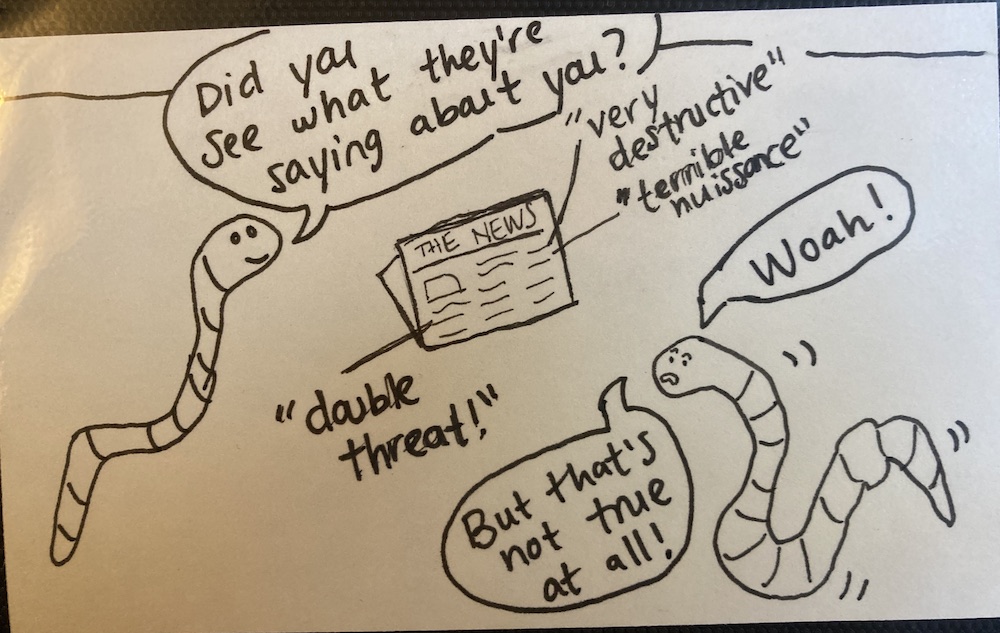 Did you
see what they're
saying about you?
"very
destructive"
"terrible
nuissance"
THE NEWS
Woah!
"double
threat!"
But that's
not true
at all!